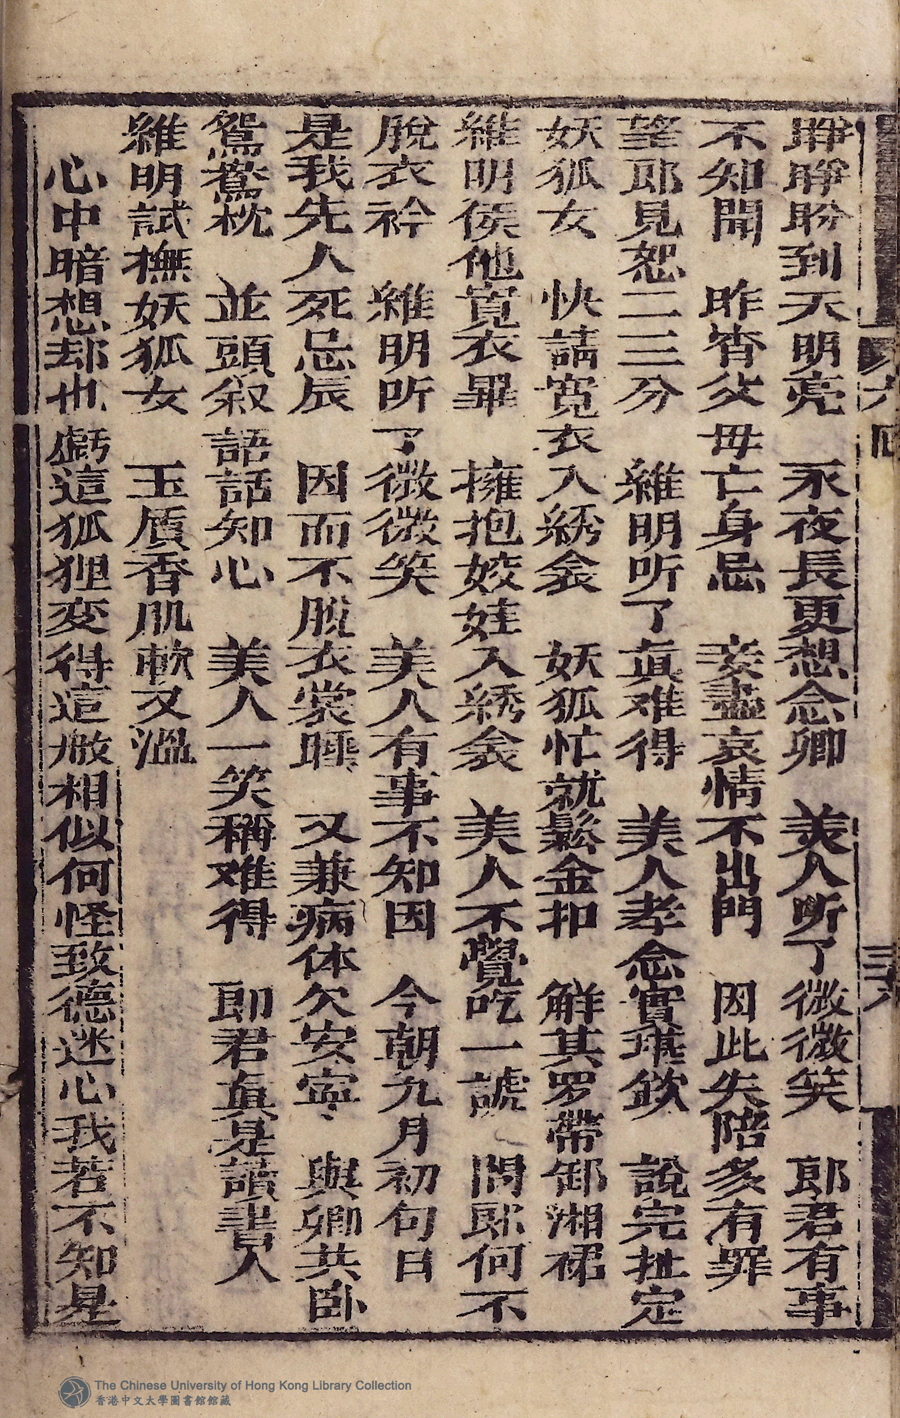 睜睜盼到天明亮 永夜長更想念卿 美人听了微微笑 郎君有事
不知聞 昨宵父母亡身忌 妾盡哀情不出門 因此失陪多有罪
望郎見恕二三分 維明听了真难得 美人孝念實堪欽 說完扯定
妖狐女 快請寬衣入綉衾 妖狐忙就鬆金扣 解其罗帶卸湘裙
維明侯他寬衣畢 擁抱姣娃入綉衾 美人不覺吃一諕 問郎何不
脫衣衿 維明听了微微笑 美人有事不知因 今朝九月初旬日
是我先人死忌辰 因而不脫衣裳睡 又兼病体欠安寧 與卿共卧
鴛鴦枕 並頭叙語話知心 美人一笑稱难得 郎君真是讀書人
維明試撫妖狐女 玉質香肌軟又溫
心中暗想却也虧這狐狸変得這般相似何怪致德迷心我若不知是
三六
The Chinese University of Hong Kong Library Collection
香港中文大學圖書館館藏